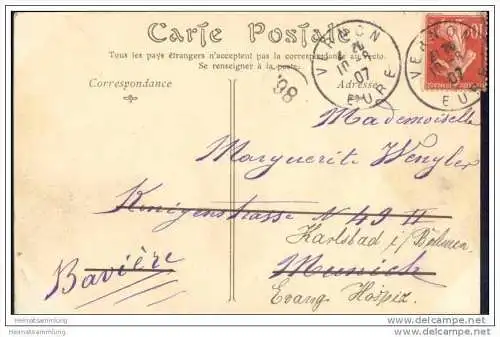 Carte Postale
Tous les pays étrangers n'acceptent pas la correspondance au recto.
Se renseigner à la poste.
Correspondance
Adresse
VERNON
07
EURE
VERNON
07
EURE
86
Mademoiselle
Marguerite Wengler
Königenstrasse N 49 II
Karlsbad i/Böhmen
Bavière
Munich
Evang. Hospiz
Hartmannsammlung
Hartmannsammlung